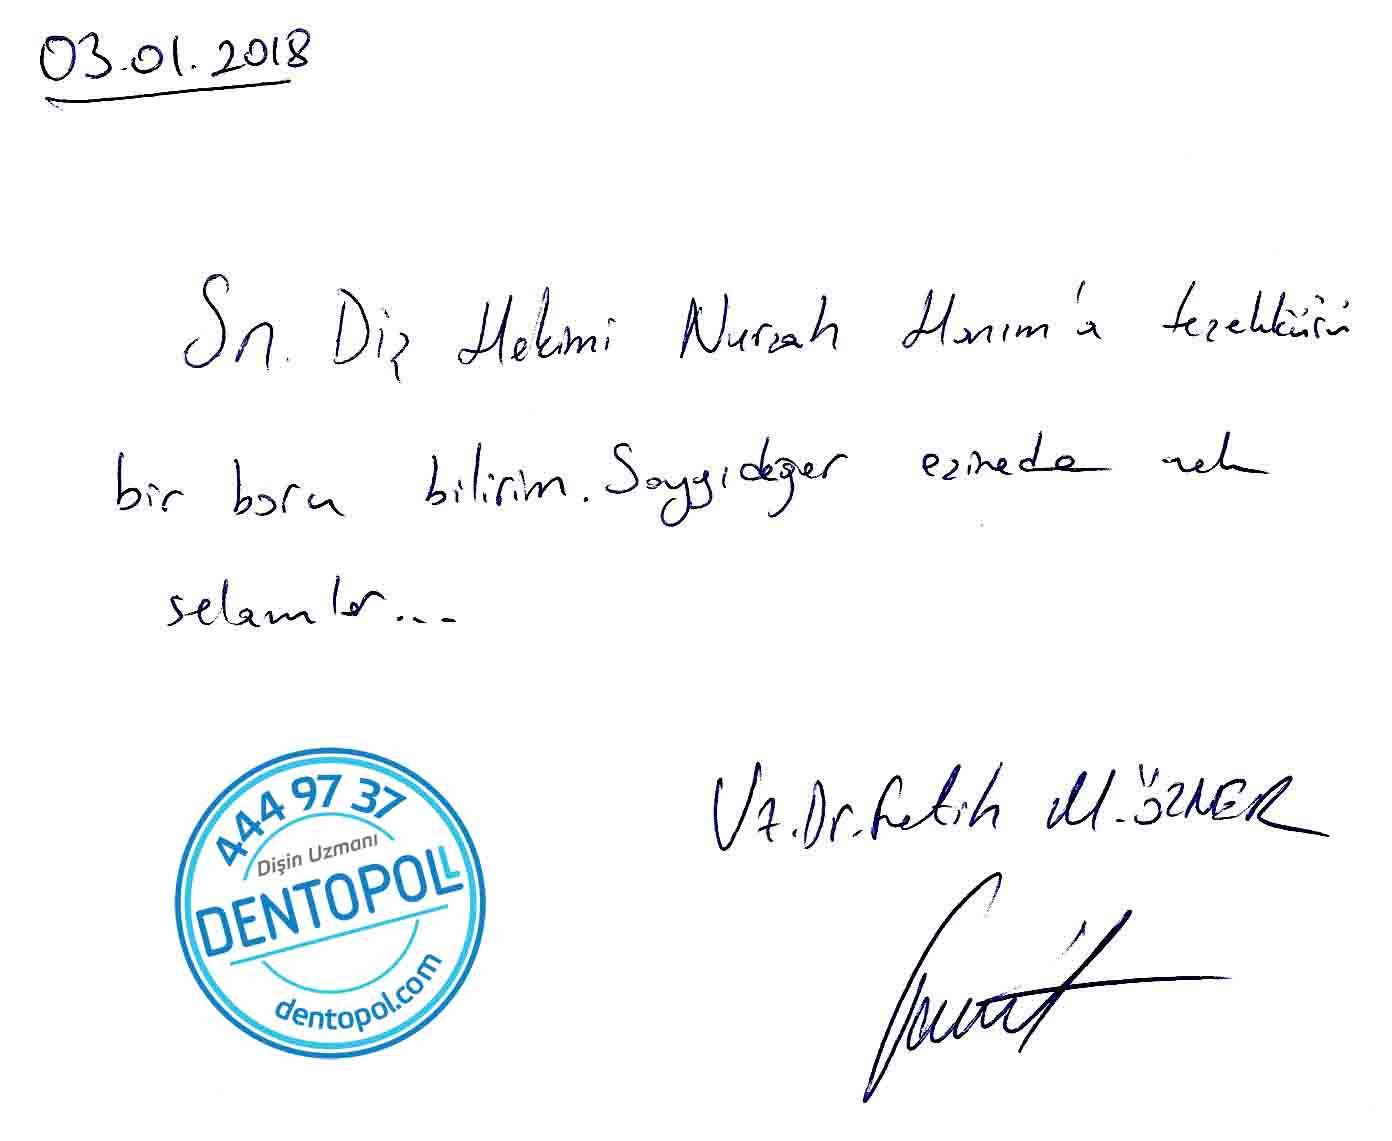 03.01.2018
Sn. Diş Hekimi Nurşah Hanım'a teşekkürü
bir borç bilirim. Saygıdeğer
selamlar...
444 97 37
Dişin Uzmanı
DENTOPOLL
dentopol.com
Uz.Dr.Fatih M.ÖZNER